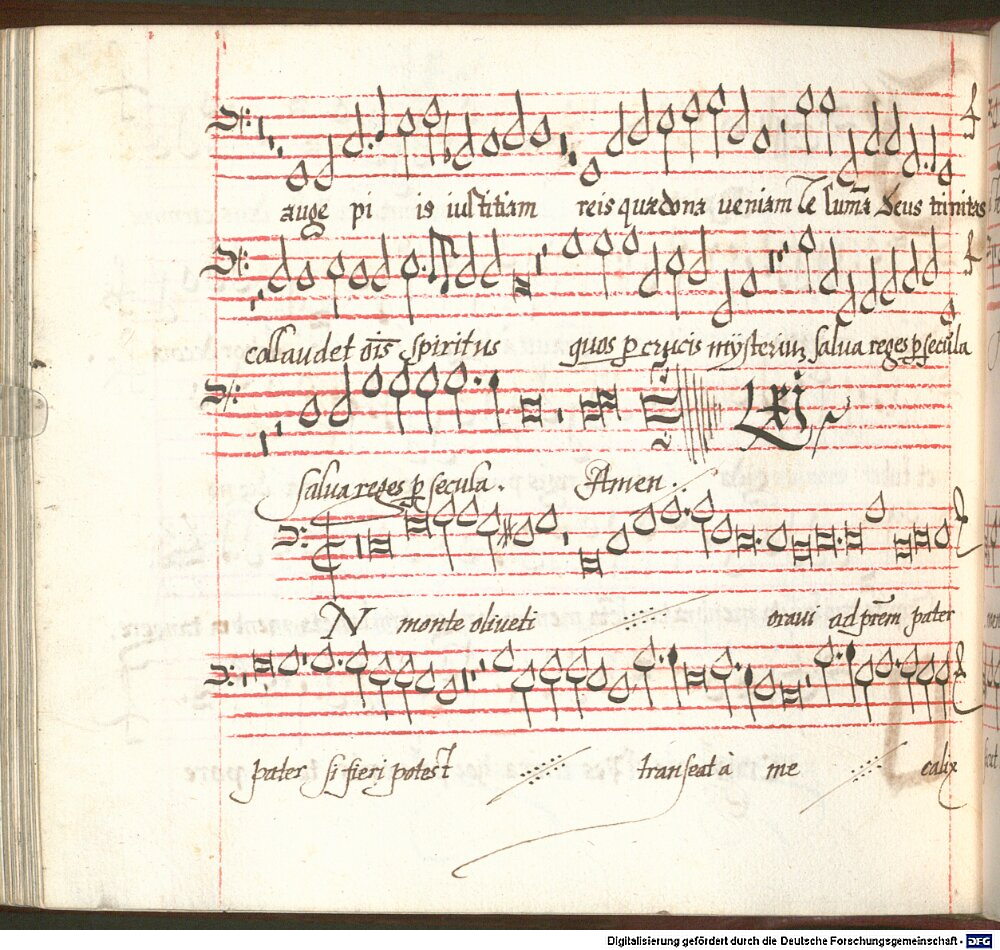 auge pi is iustitiam reis quæ dona ueniam te sum̄a Deus trinitas
collaudet oīs spiritus quos p crucis mÿsterium salua reges p secula
LXI
salua reges p secula. Amen.
IN monte oliueti oraui ad prēm pater
pater si fieri potest transeat à me calix
Digitalisierung gefördert durch die Deutsche Forschungsgemeinschaft - DFG